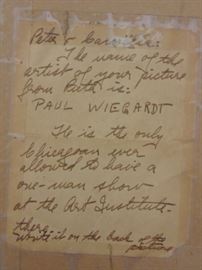 Peter &
The name of the
artist of your picture
from Ruth is:
PAUL WIEGARDT
He is the only
Chicagoan ever
allowed to have a
one-man show
at the Art Institute.
there
write it on the back of the
picture